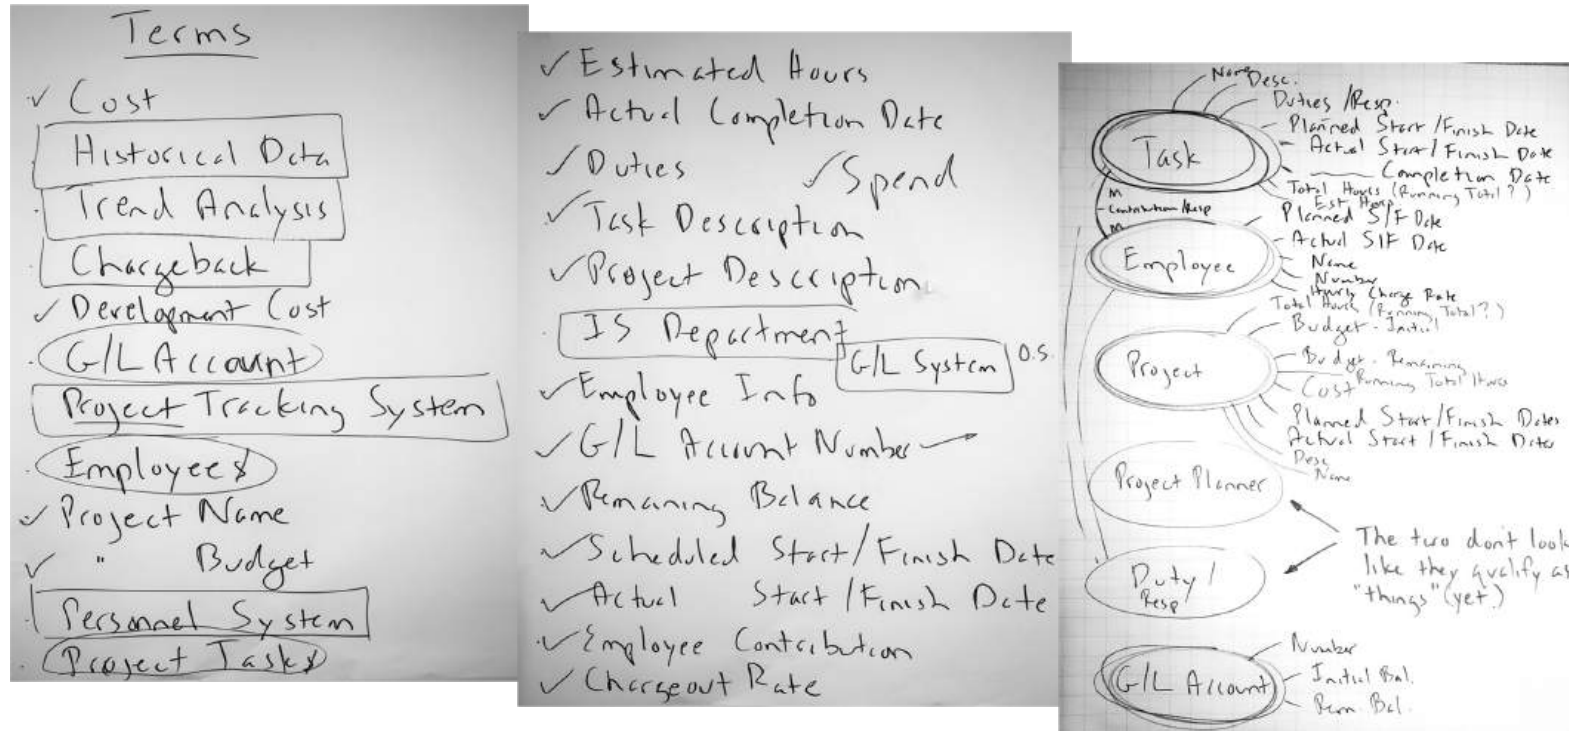 Terms
Cost
Historical Data
Trend Analysis
Chargeback
Development Cost
G/L Account
Project Tracking System
Employees
Project Name
" Budget
Personnel System
Project Tasks
Estimated Hours
Actual Completion Date
Duties
Spend
Task Description
Project Description
IS Department
G/L System O.S.
Employee Info
G/L Account Number
Remaining Balance
Scheduled Start/Finish Date
Actual Start/Finish Date
Employee Contribution
Chargeout Rate
Name
Desc.
Duties/Resp.
Planned Start/Finish Date
Task
Actual Start/Finish Date
Completion Date
Total Hours (Running Total?)
Est Hours
M
Contribution/Resp
M
Planned S/F Date
Actual S/F Date
Employee
Name
Number
Hourly Charge Rate
Total Hours (Running Total?)
Budget - Initial
Project
Budget - Remaining
Running Total Hours
Cost
Planned Start/Finish Dates
Actual Start/Finish Dates
Desc
Name
Project Planner
The two don't look
like they qualify as
"things" (yet)
Duty/
Resp
G/L Account
Number
Initial Bal.
Rem. Bal.